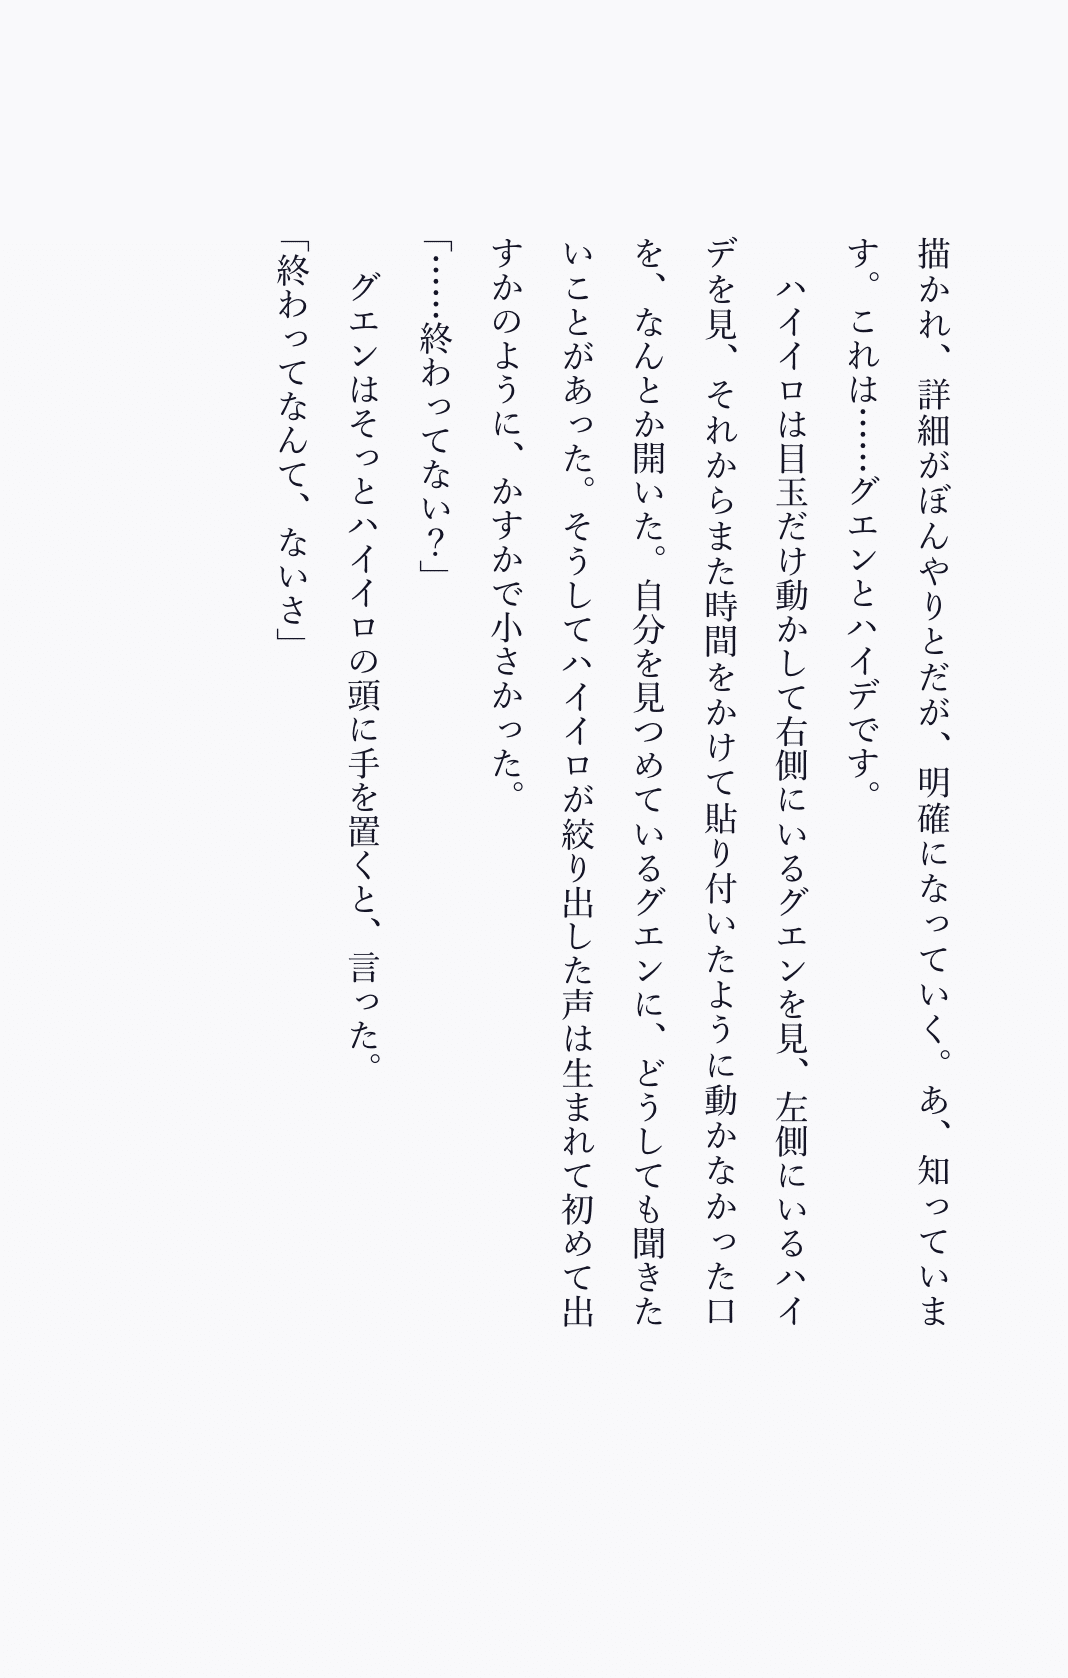 描かれ、詳細がぼんやりとだが、明確になっていく。あ、知っていま
す。これは……グエンとハイデです。
　ハイイロは目玉だけ動かして右側にいるグエンを見、左側にいるハイ
デを見、それからまた時間をかけて貼り付いたように動かなかった口
を、なんとか開いた。自分を見つめているグエンに、どうしても聞きた
いことがあった。そうしてハイイロが絞り出した声は生まれて初めて出
すかのように、かすかで小さかった。
「……終わってない？」
　グエンはそっとハイイロの頭に手を置くと、言った。
「終わってなんて、ないさ」